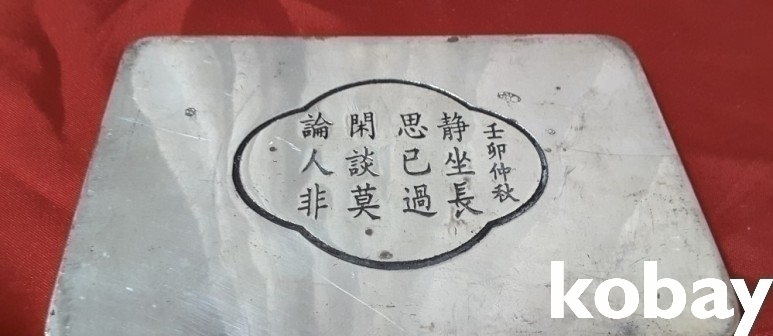 壬卯仲秋
静坐長
思已過
閑談莫
論人非
kobay